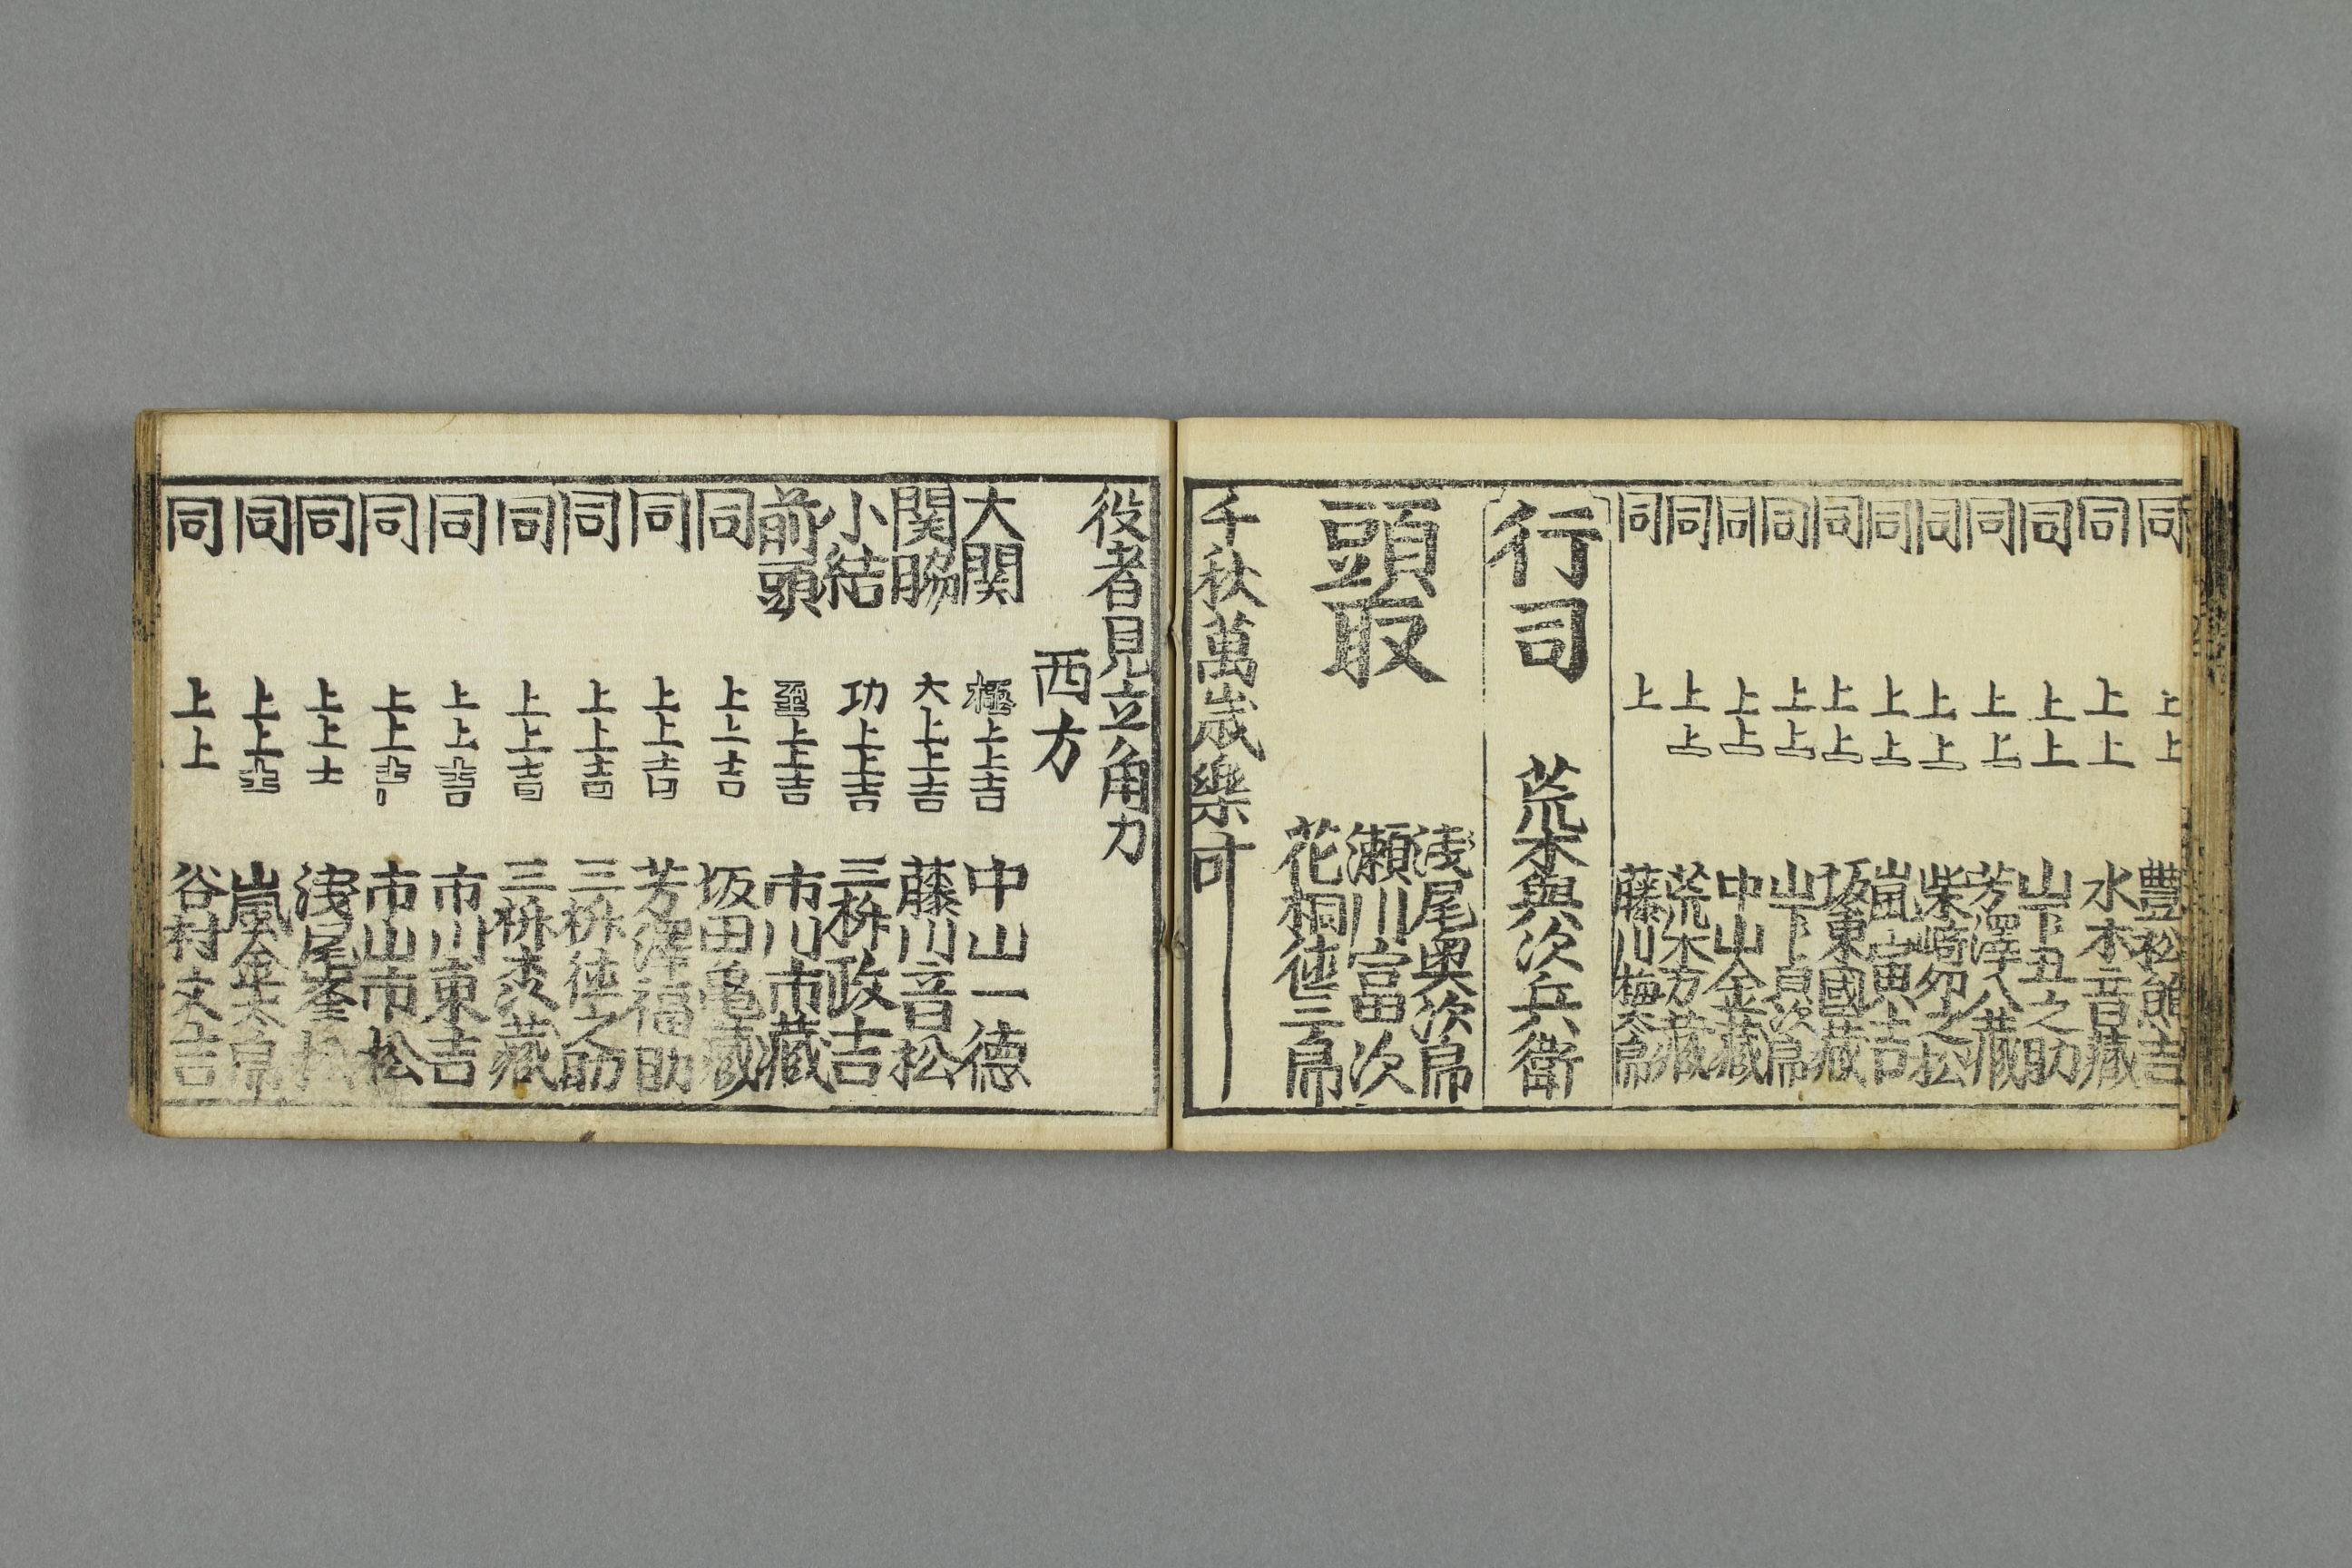 同 上上 豊松館吉
同 上上 水木音蔵
同 上上 山下丑之助
同 上上 芳澤八蔵
同 上上 柴崎勿之松
同 上上 嵐寅吉
同 上上 坂東國蔵
同 上上 山下
同 上上 中山金蔵
同 上上 荒木方蔵
同 上 藤川梅
行司 荒木與次兵衛
頭取
浅尾奥次郎
瀬川富次
花桐徳三郎
千秋萬歳樂叶
役者見立角力
西方
大関 極上上吉 中山一徳
関脇 大上上吉 藤川音松
小結 功上上吉 三枡政吉
前頭 至上上吉 市川市蔵
同 上上吉 坂田亀蔵
同 上上吉 芳澤福助
同 上上吉 三枡徳之助
同 上上吉 三枡 蔵
同 上上吉 市川東吉
同 上上 市山市松
同 上上士 浅尾峯松
同 上上 嵐金
同 上上 谷村文吉